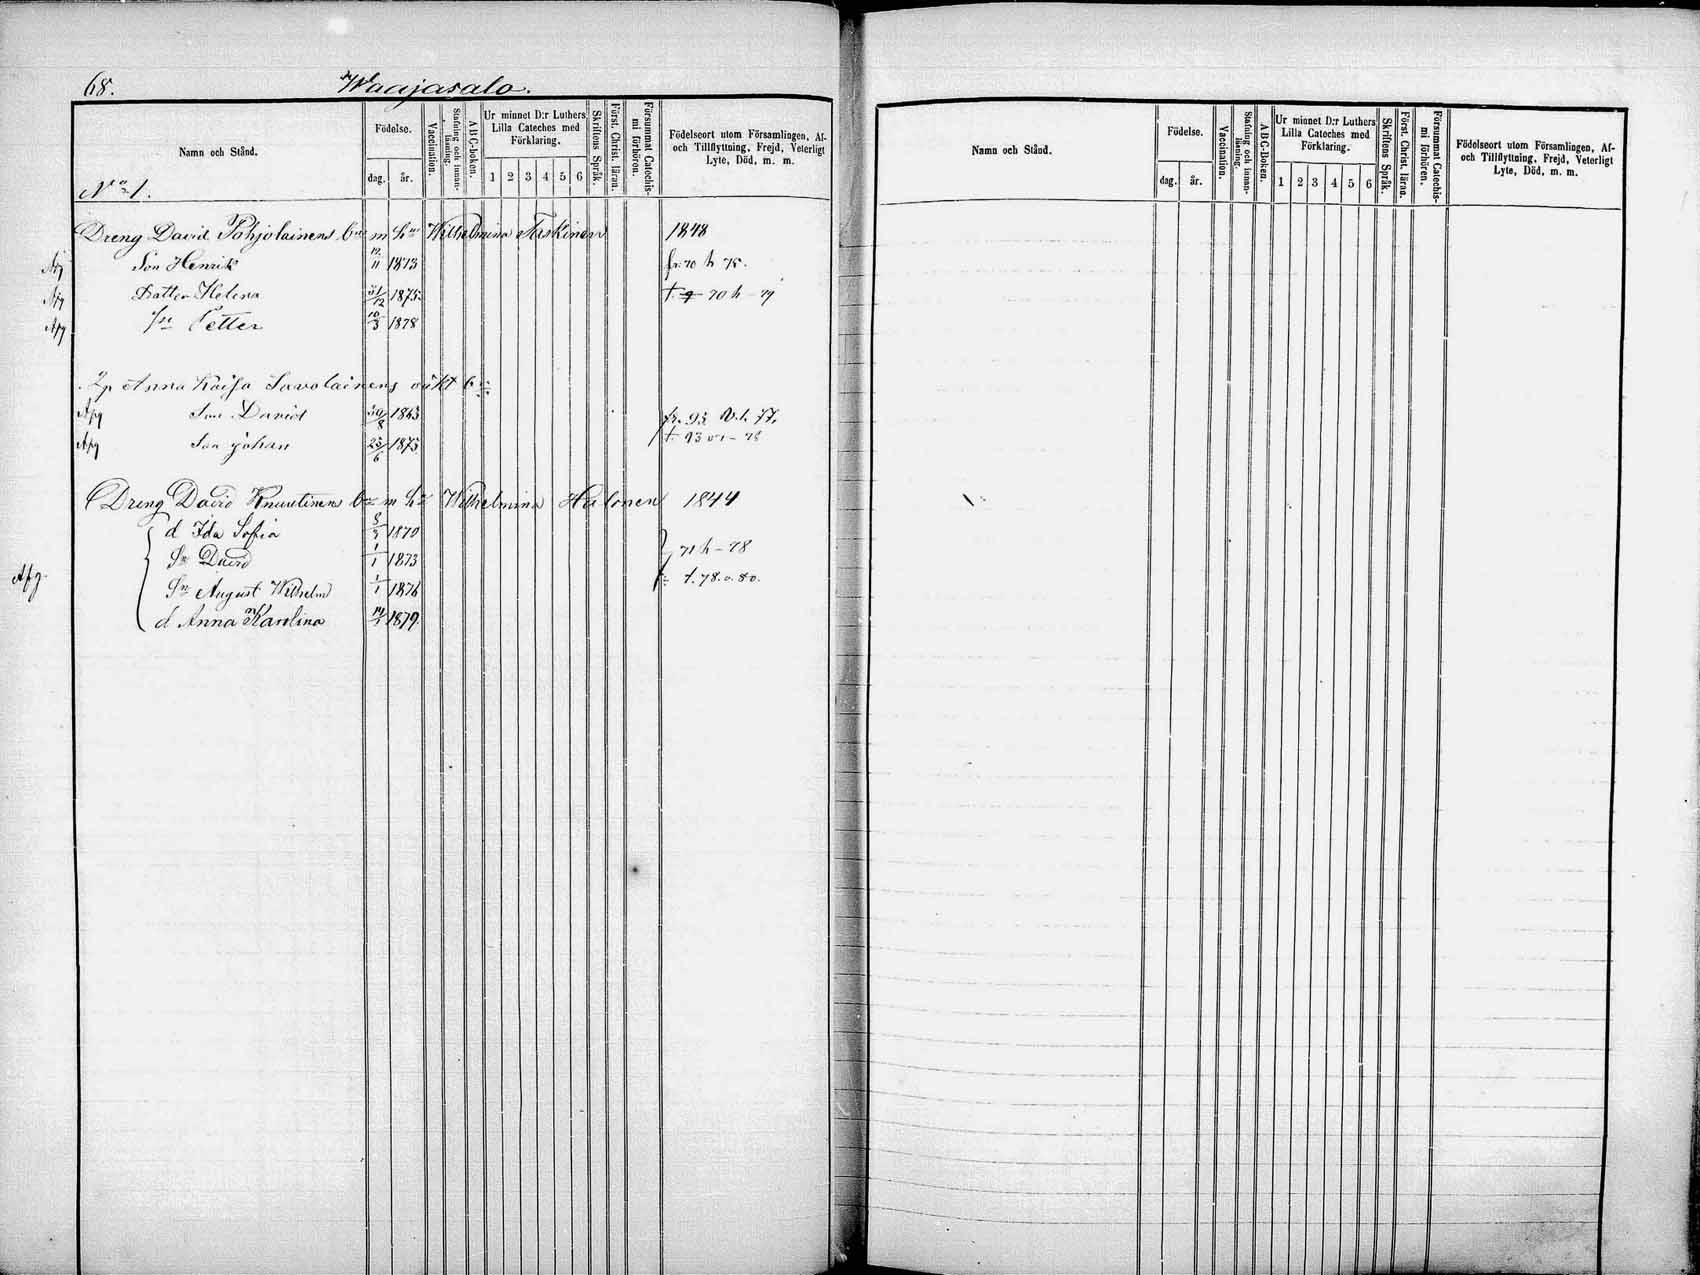 68. Waajasalo.
Namn och Stånd.
Födelse.
dag. år.
Vaccination.
Stafning och innan-läsning.
ABC-boken.
Ur minnet D:r Luthers Lilla Cateches med Förklaring.
1 2 3 4 5 6
Skriftens Språk.
Först. Christ. läran.
Försummat Catechis-mi förhören.
Födelseort utom Församlingen, Af- och Tillflyttning, Frejd, Veterligt Lyte, Död, m. m.
No 1.
Dreng David Pohjolainens b:n m h:u Wilhelmina Taskinen 1848
Son Henrik 12/11 1873 fr. 70 h 75.
Datter Helena 31/12 1875 t. 70 h - 79
Sn Petter 10/3 1878
Anna Kaisa Savolainens oäkt b:n
Apg Son David 30/8 1863 fr. 93 77.
Apg Son Johan 25/6 1873 t. 93 - 78
Dreng David Knuutinens b:n m h:u Wilhelmina Halonen 1844
d Ida Sofia 1870
Sn David 1/1 1873 71 h - 78
Apg Sn August Wilhelm 1/1 1876 t. 78. o. 80.
d Anna Karolina 1879.
Namn och Stånd.
Födelse.
dag. år.
Vaccination.
Stafning och innan-läsning.
ABC-Boken.
Ur minnet D:r Luthers Lilla Cateches med Förklaring.
1 2 3 4 5 6
Skriftens Språk.
Först. Christ. läran.
Försummat Catechis-mi förhören.
Födelseort utom Församlingen, Af- och Tillflyttning, Frejd, Veterligt Lyte, Död, m. m.